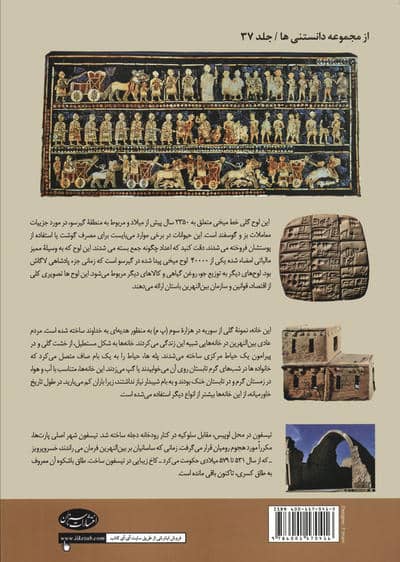 از مجموعه دانستنی ها / جلد ۳۷
این لوح گلی خط میخی متعلق به ۲۳۵۰ سال پیش از میلاد و مربوط به منطقهٔ گیرسو، در مورد جزییات
معاملات بز و گوسفند است. این حیوانات در برخی موارد می‌بایست برای مصرف گوشت یا استفاده از
پوستشان فروخته می شدند. دقت کنید که اعداد چگونه جمع بسته می شدند. این لوح که به وسیلهٔ ممیز
مالیاتی امضاء شده یکی از ۴۰۰۰۰ لوح میخی پیدا شده در گیرسو است که زمانی جزء پادشاهی لاگاش
بود. لوح‌های دیگر به توزیع جو، روغن گیاهی و کالاهای دیگر مربوط می‌شود. این لوح ها تصویری کلی
از اقتصاد، قوانین و سازمان بین‌النهرین باستان ارائه می‌دهند.
این خانه، نمونهٔ گلی از سوریه در هزارهٔ سوم (پ.م) به منظور هدیه‌ای به خداوند ساخته شده است. مردم
عادی بین‌النهرین در خانه‌هایی شبیه این زندگی می‌کردند. خانه‌ها به شکل مستطیل، از خشت گلی و در
پیرامون یک حیاط مرکزی ساخته می شدند. پله ها، حیاط را به یک بام صاف متصل می‌کرد که
خانواده ها در شب‌های گرم تابستان روی آن می‌خوابیدند یا گپ می‌زدند. این خانه‌ها، متناسب با آب و هوا،
در زمستان گرم و در تابستان خنک بودند و به بام شیبدار نیاز نداشتند، زیرا باران کم می‌بارید. در طول تاریخ
خاورمیانه، از این خانه‌ها بیشتر از انواع دیگر استفاده می‌شده است.
تیسفون در محل اوپیس، مقابل سلوکیه در کنار رودخانه دجله ساخته شد. تیسفون شهر اصلی پارت‌ها،
مکرراً مورد هجوم رومیان قرار می‌گرفت. زمانی که ساسانیان بر بین‌النهرین فرمان می راندند، خسروپرویز
ـ که از سال ۵۳۱ تا ۵۷۹ میلادی حکومت می‌کرد ـ کاخ زیبایی در تیسفون ساخت. طاق باشکوه آن معروف
به طاق کسری، تاکنون باقی مانده است.
فروش اینترنتی از طریق سایت آی آی کتاب
www.iiketab.com